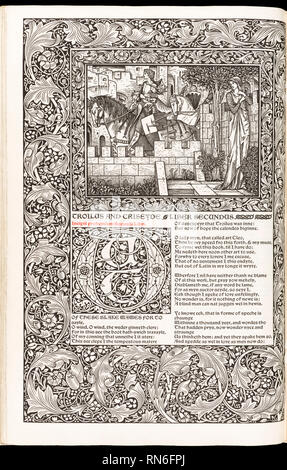 TROILUS AND CRISEYDE. LIBER SECUNDUS.
Incipit prohemium Secundi Libri.
OF THESE BLAKE WAWES FOR TO
sayle,
O wind, O wind, the weder ginneth clere;
For in this see the boot hath swich travayle,
Of my conning that unnethe I it stere:
This see clepe I the tempestous matere
Of desespeyr that Troilus was inne:
But now of hope the calendes biginne.
O lady myn, that called art Cleo,
Thou be my speed fro this forth, & my muse,
To ryme wel this book, til I have do;
Me nedeth here noon other art to use.
Forwhy to every lovere I me excuse,
That of no sentement I this endyte,
But out of Latin in my tonge it wryte.
Wherfore I nil have neither thank ne blame
Of al this werk, but prey yow mekely,
Disblameth me, if any word be lame,
For as myn auctor seyde, so sey I.
Eek though I speke of love unfelingly,
No wonder is, for it nothing of newe is;
A blind man can nat juggen wel in hewis.
Ye knowe eek, that in forme of speche is
chaunge
Withinne a thousand yeer, and wordes tho
That hadden prys, now wonder nyce and
straunge
Us thinketh hem; and yet they spake hem so,
And spedde as wel in love as men now do;
alamy
Image ID: RN6FPJ
www.alamy.com